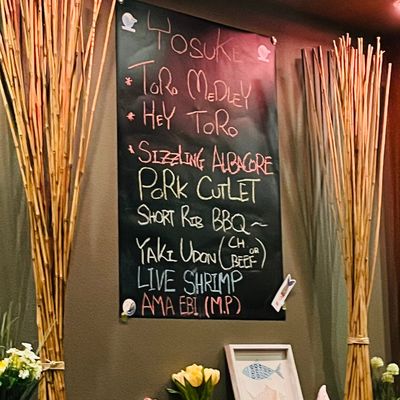 YOSUKE
* TORO MEDLEY
* HEY TORO
* SIZZLING ALBACORE
PORK CUTLET
SHORT RIB BBQ ~
YAKI UDON (CH OR BEEF)
LIVE SHRIMP
AMA EBI (M.P)